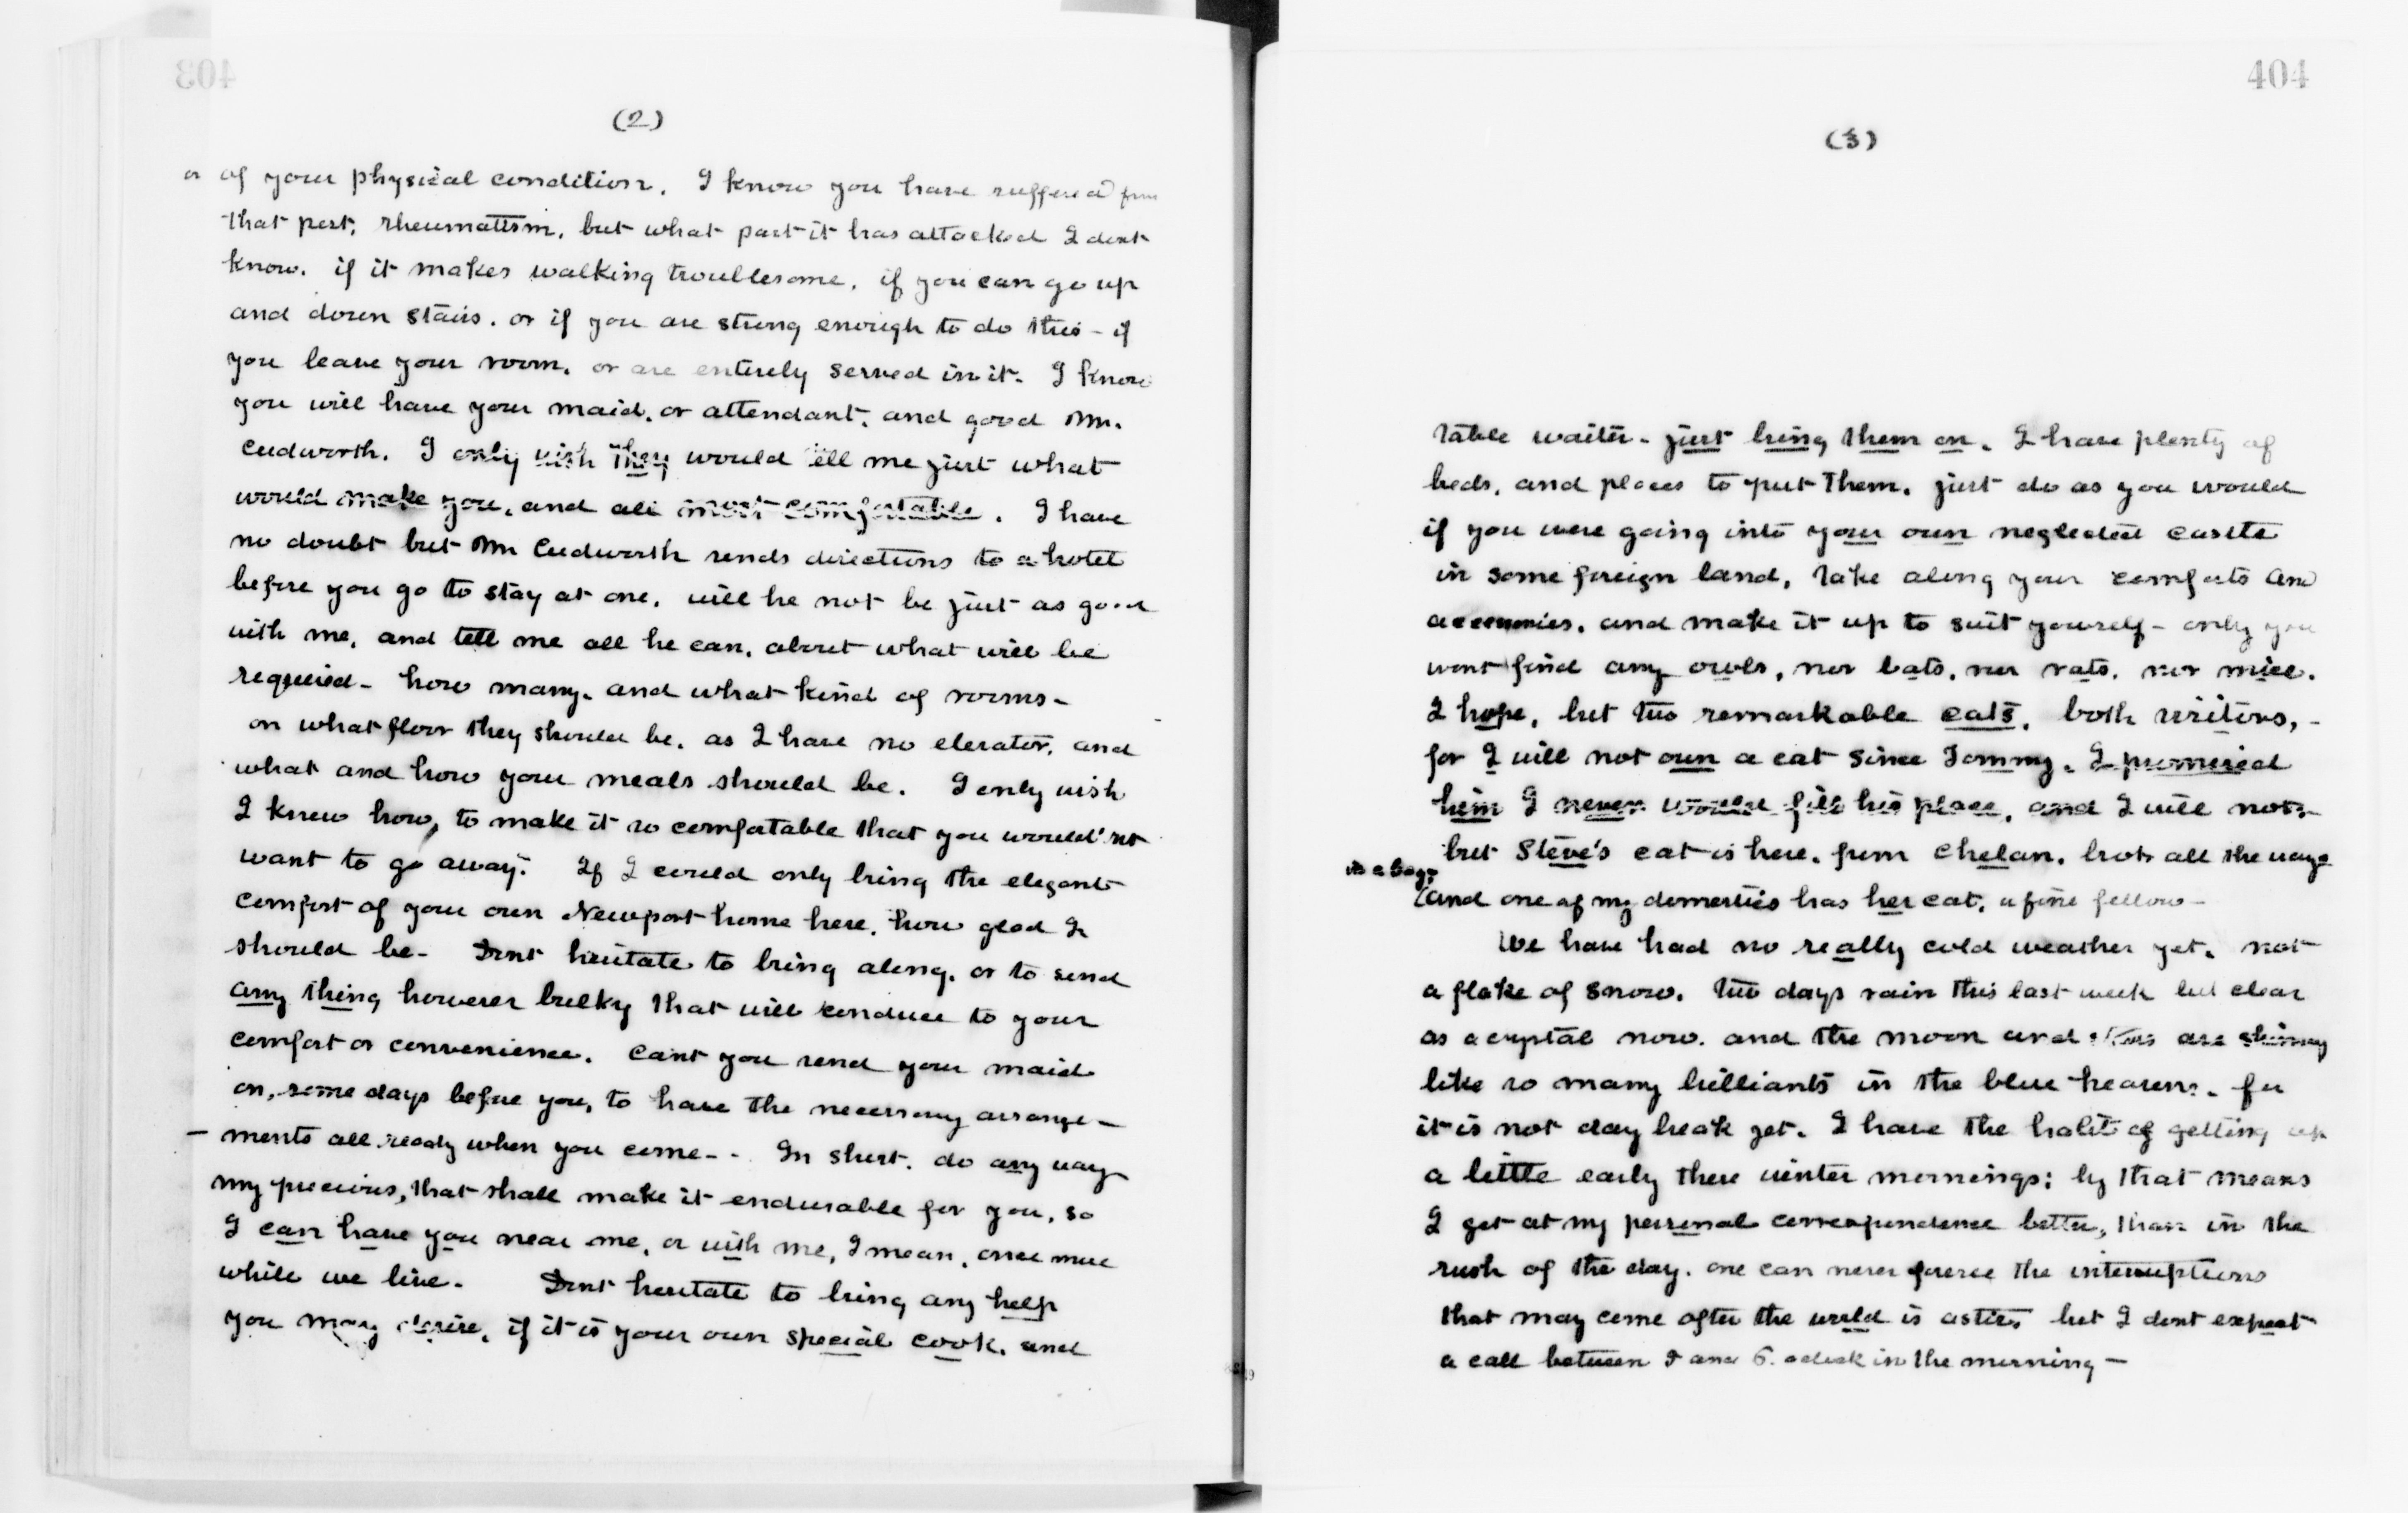 403
(2)
or of your physical condition. I know you have suffered from
that pest, rheumatism, but what part it has attacked I dont
know. if it makes walking troublesome, if you can go up
and down stairs. or if you are strong enough to do this - if
you leave your room, or are entirely served in it. I know
you will have your maid, or attendant, and good Mr.
Cudworth. I only wish they would tell me just what
would make you, and all most comfortable. I have
no doubt but Mr Cudworth sends directions to a hotel
before you go to stay at one, will he not be just as good
with me, and tell me all he can, about what will be
required - how many, and what kind of rooms -
on what floor they should be, as I have no elevator, and
what and how your meals should be. I only wish
I knew how, to make it so comfortable that you would'nt
want to go away. If I could only bring the elegant
comfort of your own Newport home here, how glad I
should be - Dont hesitate to bring along, or to send
any thing, however bulky that will conduce to your
comfort or convenience. Cant you send your maid
on, some days before you, to have the necessary arrange -
- ments all ready when you come - - In short, do any way
my precious, that shall make it endurable for you, so
I can have you near me, or with me, I mean, once more
while we live - Dont hesitate to bring any help
you may desire, if it is your own special cook, and
404
(3)
table waiter - just bring them on. I have plenty of
beds, and places to put them. just do as you would
if you were going into your own neglected castle
in some foreign land, take along your comforts and
accessories, and make it up to suit yourself - only you
wont find any owls, nor bats, nor rats, nor mice.
I hope, but two remarkable cats, both visitors, -
for I will not own a cat since Tommy. I promised
him I never would fill his place, and I will not -
but Steve's cat is here, from Chelan, brot all the way
in a bag,
(and one of my domestics has her cat, a fine fellow -
We have had no really cold weather yet, not
a flake of snow. two days rain this last week but clear
as a crystal now. and the moon and stars are shining
like so many brilliants in the blue heavens - for
it is not day break yet. I have the habit of getting up
a little early these winter mornings; by that means
I get at my personal correspondence better, than in the
rush of the day. one can never foresee the interruptions
that may come after the world is astir, but I dont expect
a call between and 6. oclock in the morning -